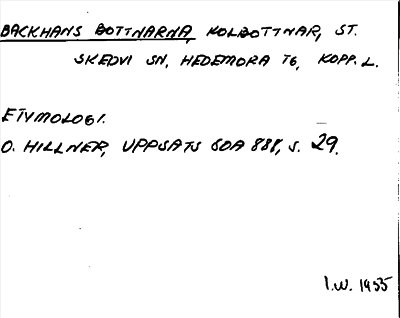 BACKHANS BOTTNARNA, KOLBOTTNAR, ST.
SKEDVI SN, HEDEMORA TG, KOPP. L.
ETYMOLOGI.
O. HILLNER, UPPSATS SOA 888, S. 29.
I.W. 1935